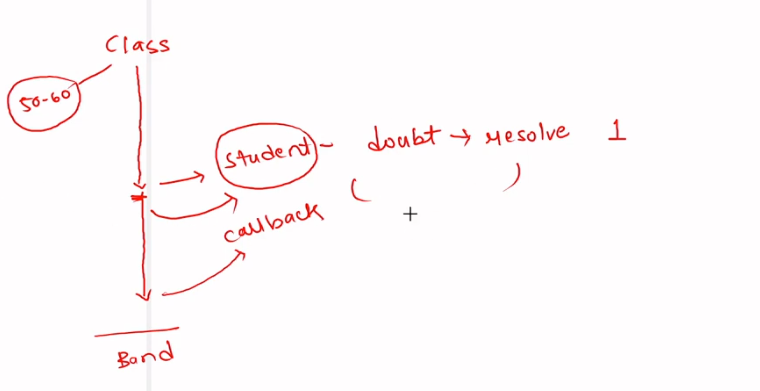 Class
50-60
student - doubt → resolve 1
( )
callback
Band